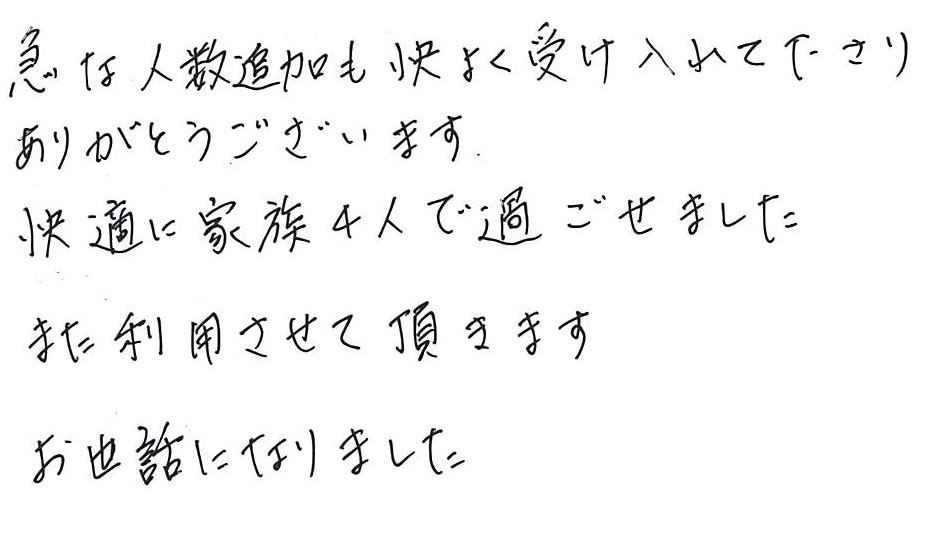 急な人数追加も快よく受け入れて下さり
ありがとうございます.
快適に家族4人で過ごせました
また利用させて頂きます
お世話になりました